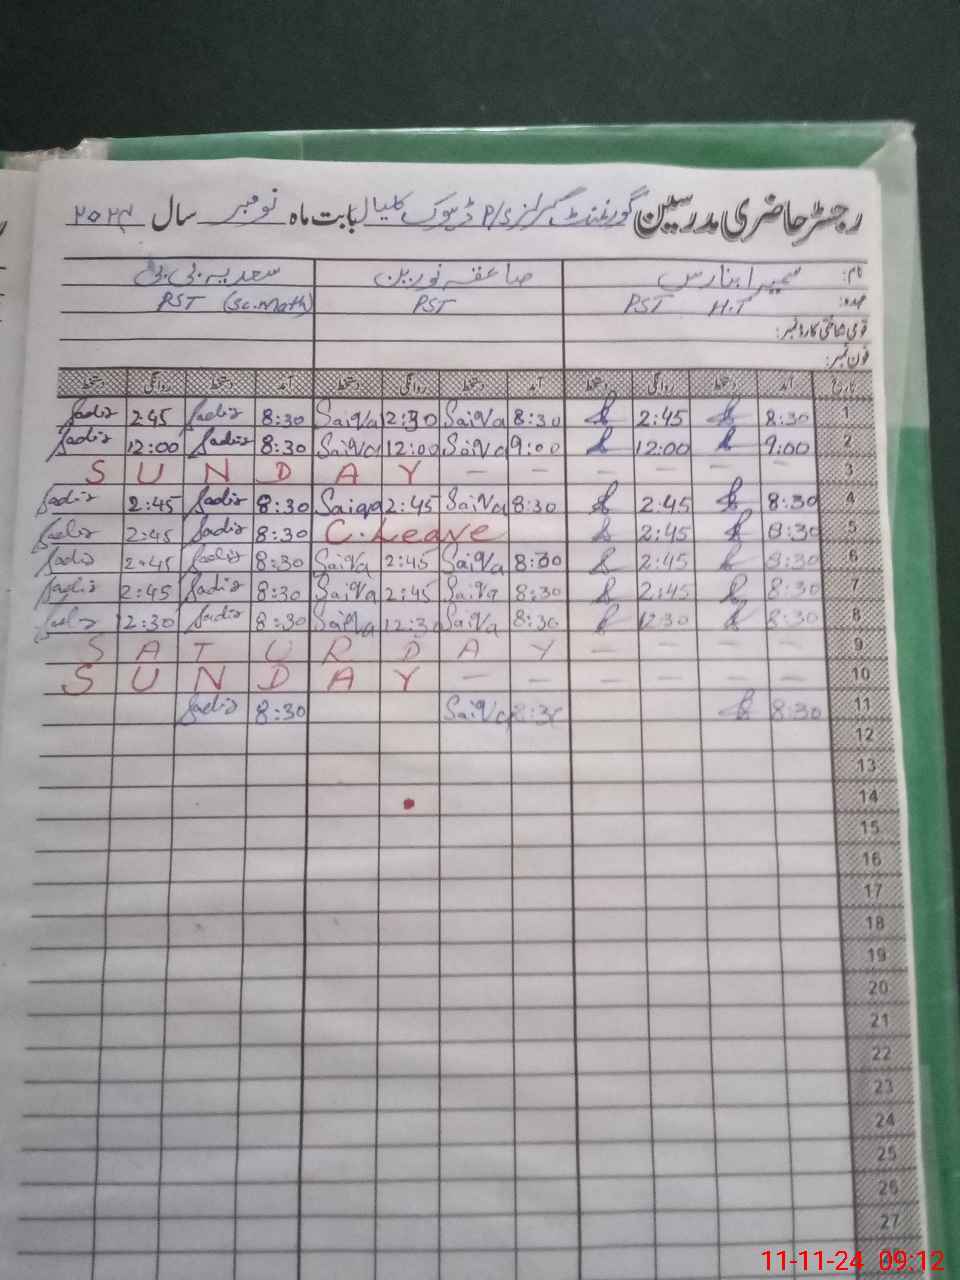 رجسٹر حاضری مدرسین گورنمنٹ گرلز P/S ڈہوک کلیال بابت ماہ نومبر سال ۲۰۲۴
نام: سمیرا بنارس صاعقہ نورین سعدیہ بی بی
عہدہ: PST H.T PST PST (Sc.Math)
قومی شناختی کارڈ نمبر:
فون نمبر:
تاریخ آمد دستخط روانگی دستخط آمد دستخط روانگی دستخط آمد دستخط روانگی دستخط
Sadia 2:45 Sadia 8:30 Saiqa 2:30 Saiqa 8:30 2:45 8:30 1
Sadia 12:00 Sadia 8:30 Saiqa 12:00 Saiqa 9:00 12:00 9:00 2
S U N D A Y — — — — — — 3
Sadia 2:45 Sadia 8:30 Saiqa 2:45 Saiqa 8:30 2:45 8:30 4
Sadia 2:45 Sadia 8:30 C.Leave 2:45 8:30 5
Sadia 2:45 Sadia 8:30 Saiqa 2:45 Saiqa 8:30 2:45 8:30 6
Sadia 2:45 Sadia 8:30 Saiqa 2:45 Saiqa 8:30 2:45 8:30 7
Sadia 12:30 Sadia 8:30 Saiqa 12:30 Saiqa 8:30 12:30 8:30 8
S A T U R D A Y — — — — 9
S U N D A Y — — — — — — 10
Sadia 8:30 Saiqa 8:30 8:30 11
12
13
14
15
16
17
18
19
20
21
22
23
24
25
26
27
11-11-24 09:12